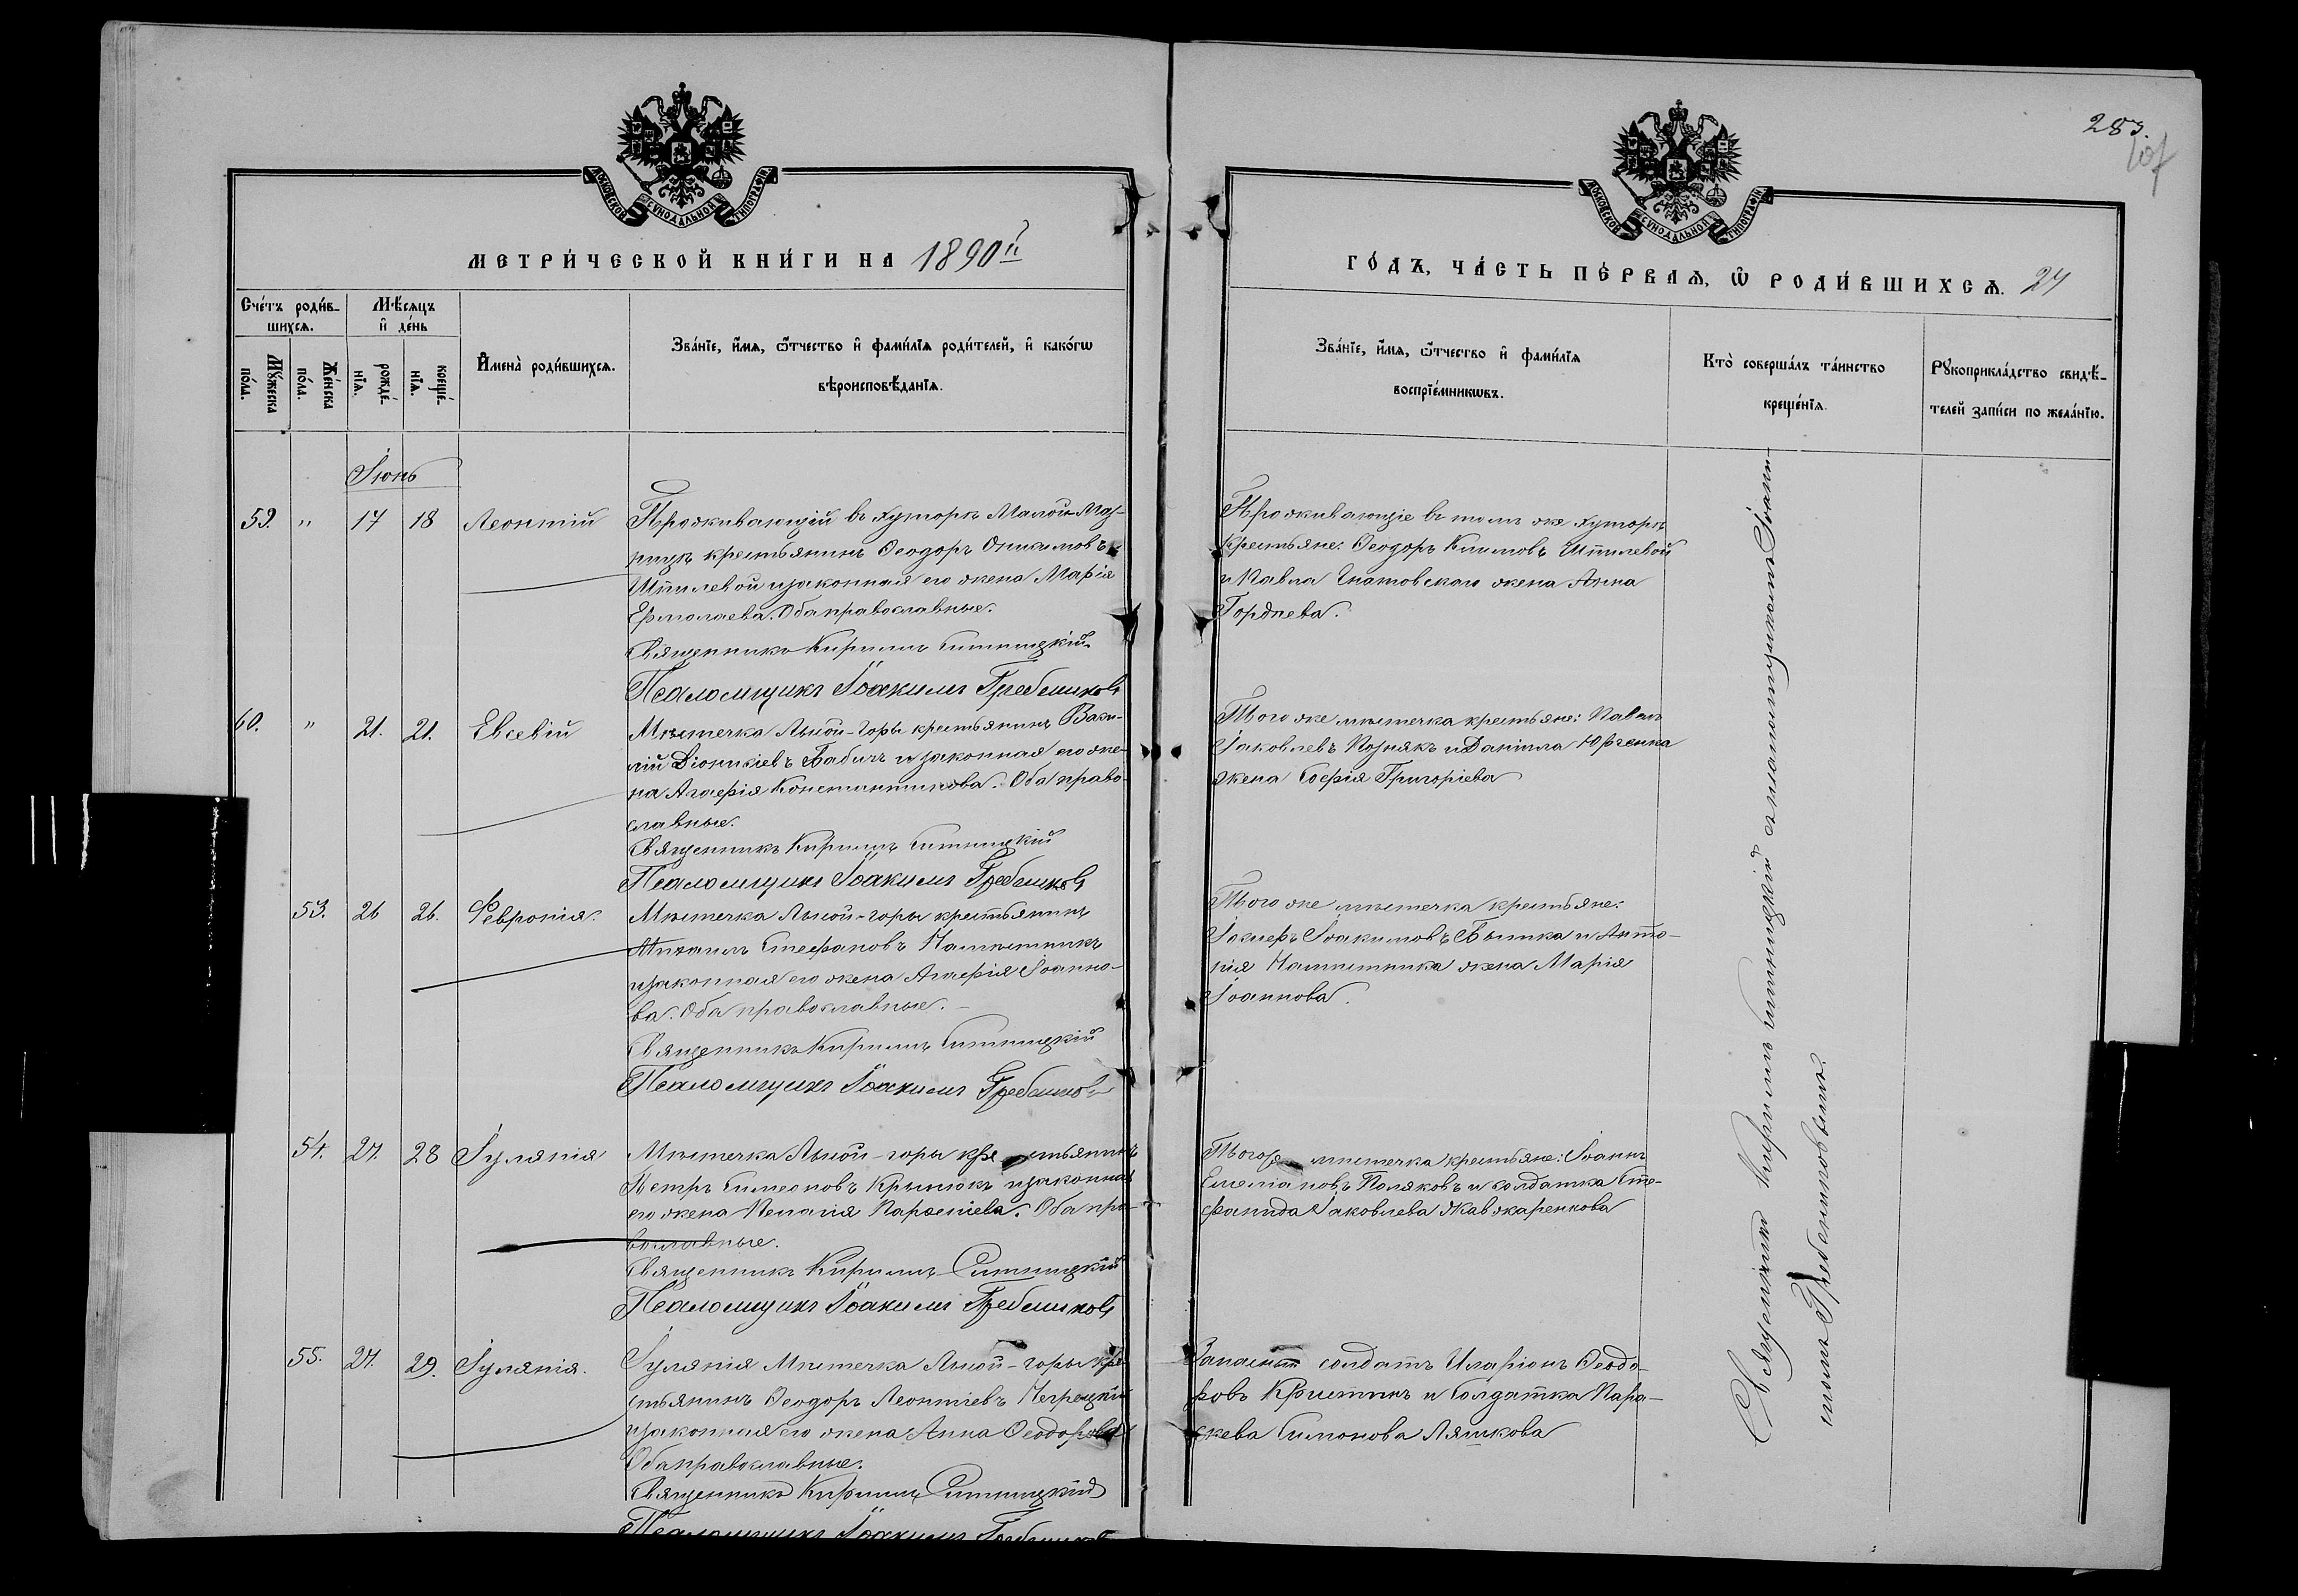 283.
МОСКОВСКОЙ СУНОДАЛЬНОЙ ТИПОГРАФІИ
МЕТРИ́ЧЕСКОЙ КНИ́ГИ НА 1890й
Сче́тъ роди́в-
шихсѧ.
Мѣ́сѧцъ
и҆ де́нь
Мꙋ́жеска
по́ла.
Же́нска
по́ла.
рожде́-
нїѧ.
креще́-
нїѧ.
И҆мена̀ роди́вшихсѧ.
Зва́нїе, и҆́мѧ, ѻ҆́тчество и҆ фами́лїѧ роди́телей, и҆ како́гѡ
вѣроисповѣ́данїѧ.
Іюнь
59. " 17 18 Леонтій
Проживающій въ хуторѣ Малой
крестьянинъ Ѳеодоръ Онисимовъ
Шпилевой и законная его жена Марія
Ермолаева. Оба православные.
Священникъ Кириллъ Ситницкій
Псаломщикъ Іоакимъ Гребенниковъ
60. " 21. 21. Евсевій
Мѣстечка Лысой-Горы крестьянинъ Васи-
лій Діонисіевъ Бабичъ и законная его же-
на Агафія Константинова. Оба право-
славные.
Священникъ Кириллъ Ситницкій
Псаломщикъ Іоакимъ Гребенниковъ
53. 26 26. Февронія.
Мѣстечка Лысой-горы крестьянинъ
Михаилъ Стефановъ Намѣстникъ
и законная его жена Агафія Іоанно-
ва. Оба православные.
Священникъ Кириллъ Ситницкій
Псаломщикъ Іоакимъ Гребенниковъ
54. 27. 28 Іулянія
Мѣстечка Лысой-горы крестьянинъ
Петръ Симеоновъ Крыжокъ и законная
его жена Пелагія Парѳеніева. Оба пра-
вославные.
Священникъ Кириллъ Ситницкій
Псаломщикъ Іоакимъ Гребенниковъ
55. 27. 29. Іулянія.
Іулянія Мѣстечка Лысой-горы кре-
стьянинъ Ѳеодоръ Леонтіевъ
и законная его жена Анна Ѳеодорова
Оба православные.
Священникъ Кириллъ Ситницкій
Псаломщикъ Іоакимъ Гребенниковъ
МОСКОВСКОЙ СУНОДАЛЬНОЙ ТИПОГРАФІИ
ГО́ДЪ, ЧА́СТЬ ПЕ́РВАѦ, Ѡ҆ РОДИ́ВШИХСѦ. 27
Зва́нїе, и҆́мѧ, ѻ҆́тчество и҆ фами́лїѧ
воспрїе́мникѡвъ.
Кто̀ соверша́лъ та́инство
креще́нїѧ.
Рꙋкоприкла́дство свидѣ́-
телей за́писи по жела́нїю.
Проживающіе въ томъ же хуторѣ
крестьяне: Ѳеодоръ Климовъ Шпилевой
и Павла Игнатовскаго жена Анна
Гордѣева.
Того же мѣстечка крестьяне: Павелъ
Іаковлевъ Познякъ и Даніила Юрченка
жена Софія Григоріева
Того же мѣстечка крестьяне:
Іосифъ Іоакимовъ и Анто-
нія Намѣстника жена Марія
Іоаннова.
Того же мѣстечка крестьяне: Іоаннъ
Емеліановъ Поляковъ и солдатка Сте-
фанида Іаковлева
Запасный солдатъ Иларіонъ Ѳеодо-
ровъ и Солдатка Пара-
скева Симонова Ляшкова
Священникъ Кириллъ Ситницкій съ псаломщикомъ Іоаки-
момъ Гребенниковымъ.